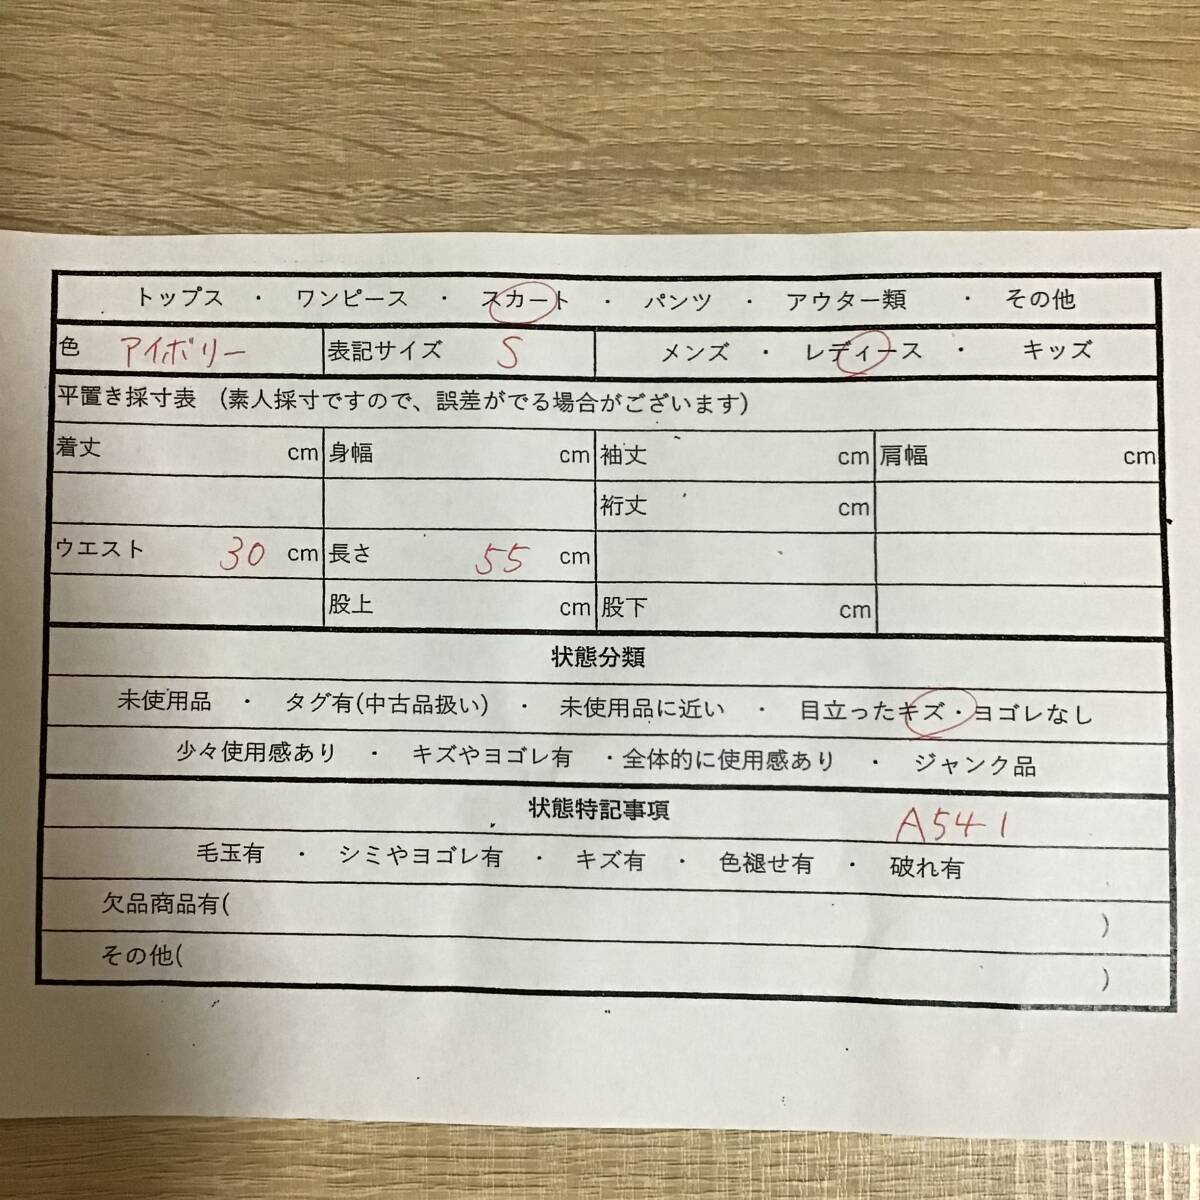 トップス ・ ワンピース ・ スカート ・ パンツ ・ アウター類 ・ その他
色 アイボリー 表記サイズ S メンズ ・ レディース ・ キッズ
平置き採寸表 (素人採寸ですので、誤差がでる場合がございます)
着丈 cm 身幅 cm 袖丈 cm 肩幅 cm
裄丈 cm
ウエスト 30 cm 長さ 55 cm
股上 cm 股下 cm
状態分類
未使用品 ・ タグ有(中古品扱い) ・ 未使用品に近い ・ 目立ったキズ・ヨゴレなし
少々使用感あり ・ キズやヨゴレ有 ・全体的に使用感あり ・ ジャンク品
状態特記事項 A541
毛玉有 ・ シミやヨゴレ有 ・ キズ有 ・ 色褪せ有 ・ 破れ有
欠品商品有( )
その他( )